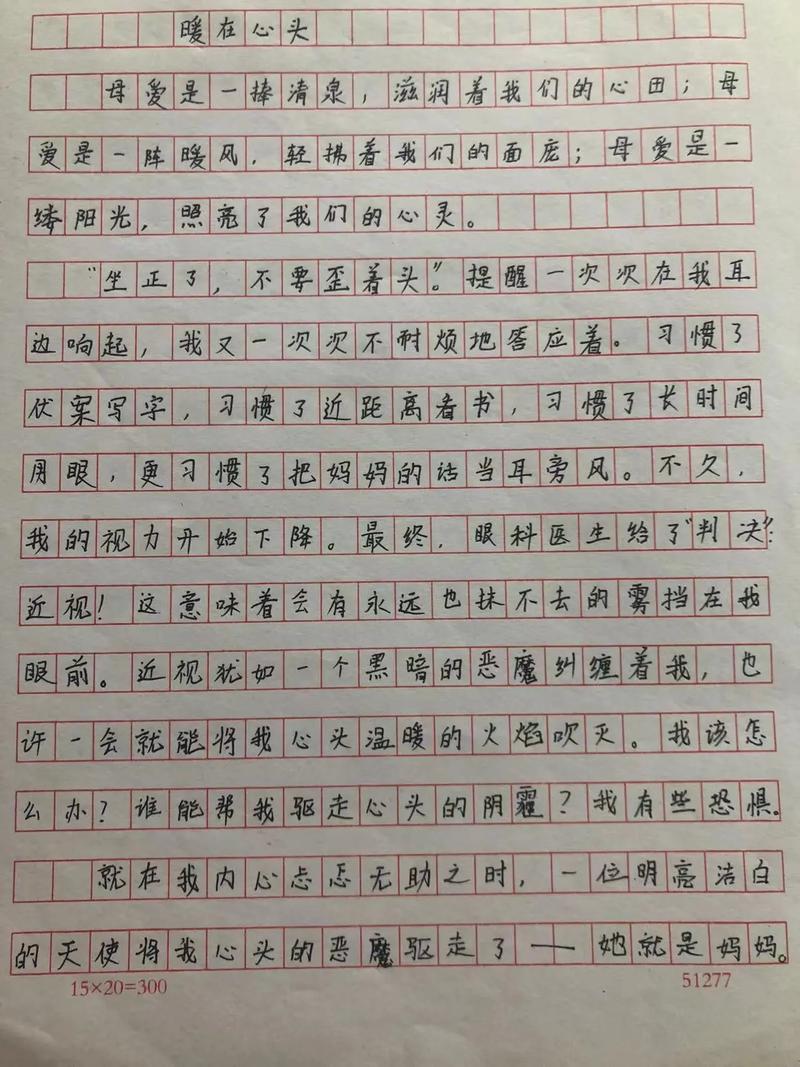 暖在心头
母爱是一捧清泉，滋润着我们的心田；母
爱是一阵暖风，轻拂着我们的面庞；母爱是一
缕阳光，照亮了我们的心灵。
"坐正了，不要歪着头"。提醒一次次在我耳
边响起，我又一次次不耐烦地答应着。习惯了
伏案写字，习惯了近距离看书，习惯了长时间
用眼，更习惯了把妈妈的话当耳旁风。不久，
我的视力开始下降。最终，眼科医生给了"判决"：
近视！这意味着会有永远也抹不去的雾挡在我
眼前。近视犹如一个黑暗的恶魔纠缠着我，也
许一会就能将我心头温暖的火焰吹灭。我该怎
么办？谁能帮我驱走心头的阴霾？我有些恐惧。
就在我内心忐怎无助之时，一位明亮洁白
的天使将我心头的恶魔驱走了——她就是妈妈。
15×20=300 51277